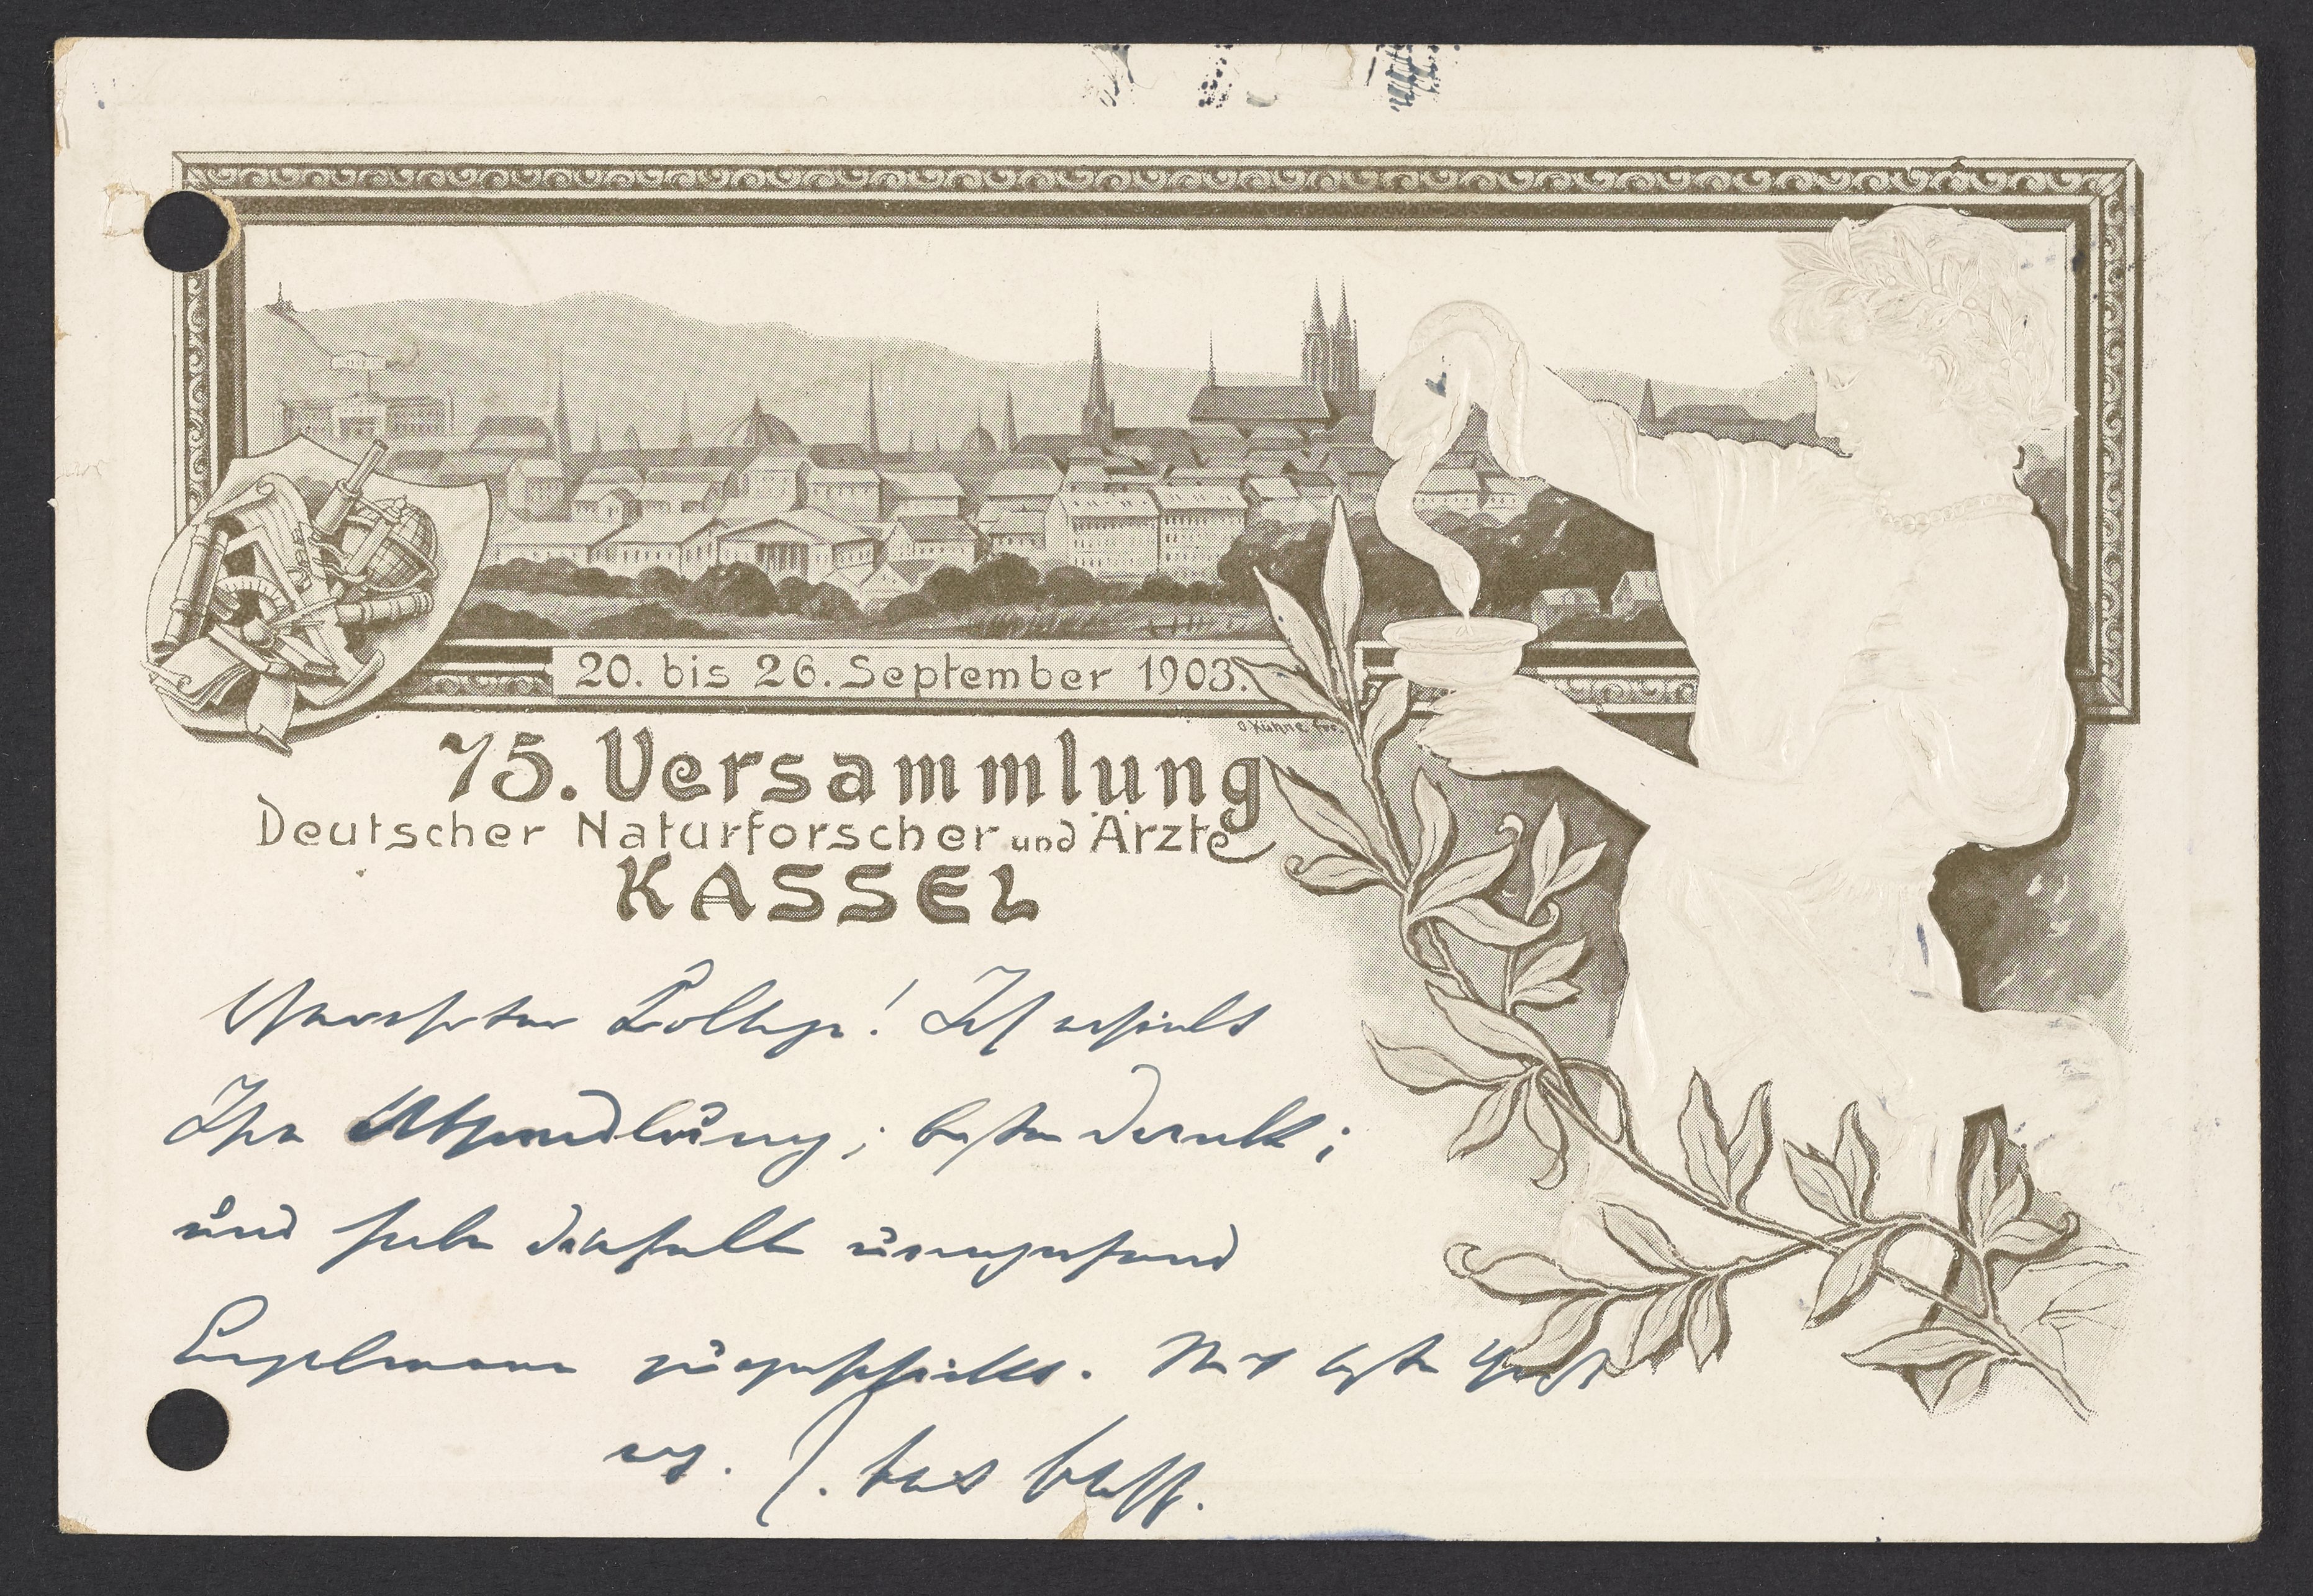 20. bis 26. September 1903.
O. Kühne
75. Versammlung
Deutscher Naturforscher und Ärzte
KASSEL
Verehrter Kollege! Ich erhielt
Ihre Abhandlung; besten Dank;
und habe dieselbe umgehend
Engelmann zugeschickt. Mit besten